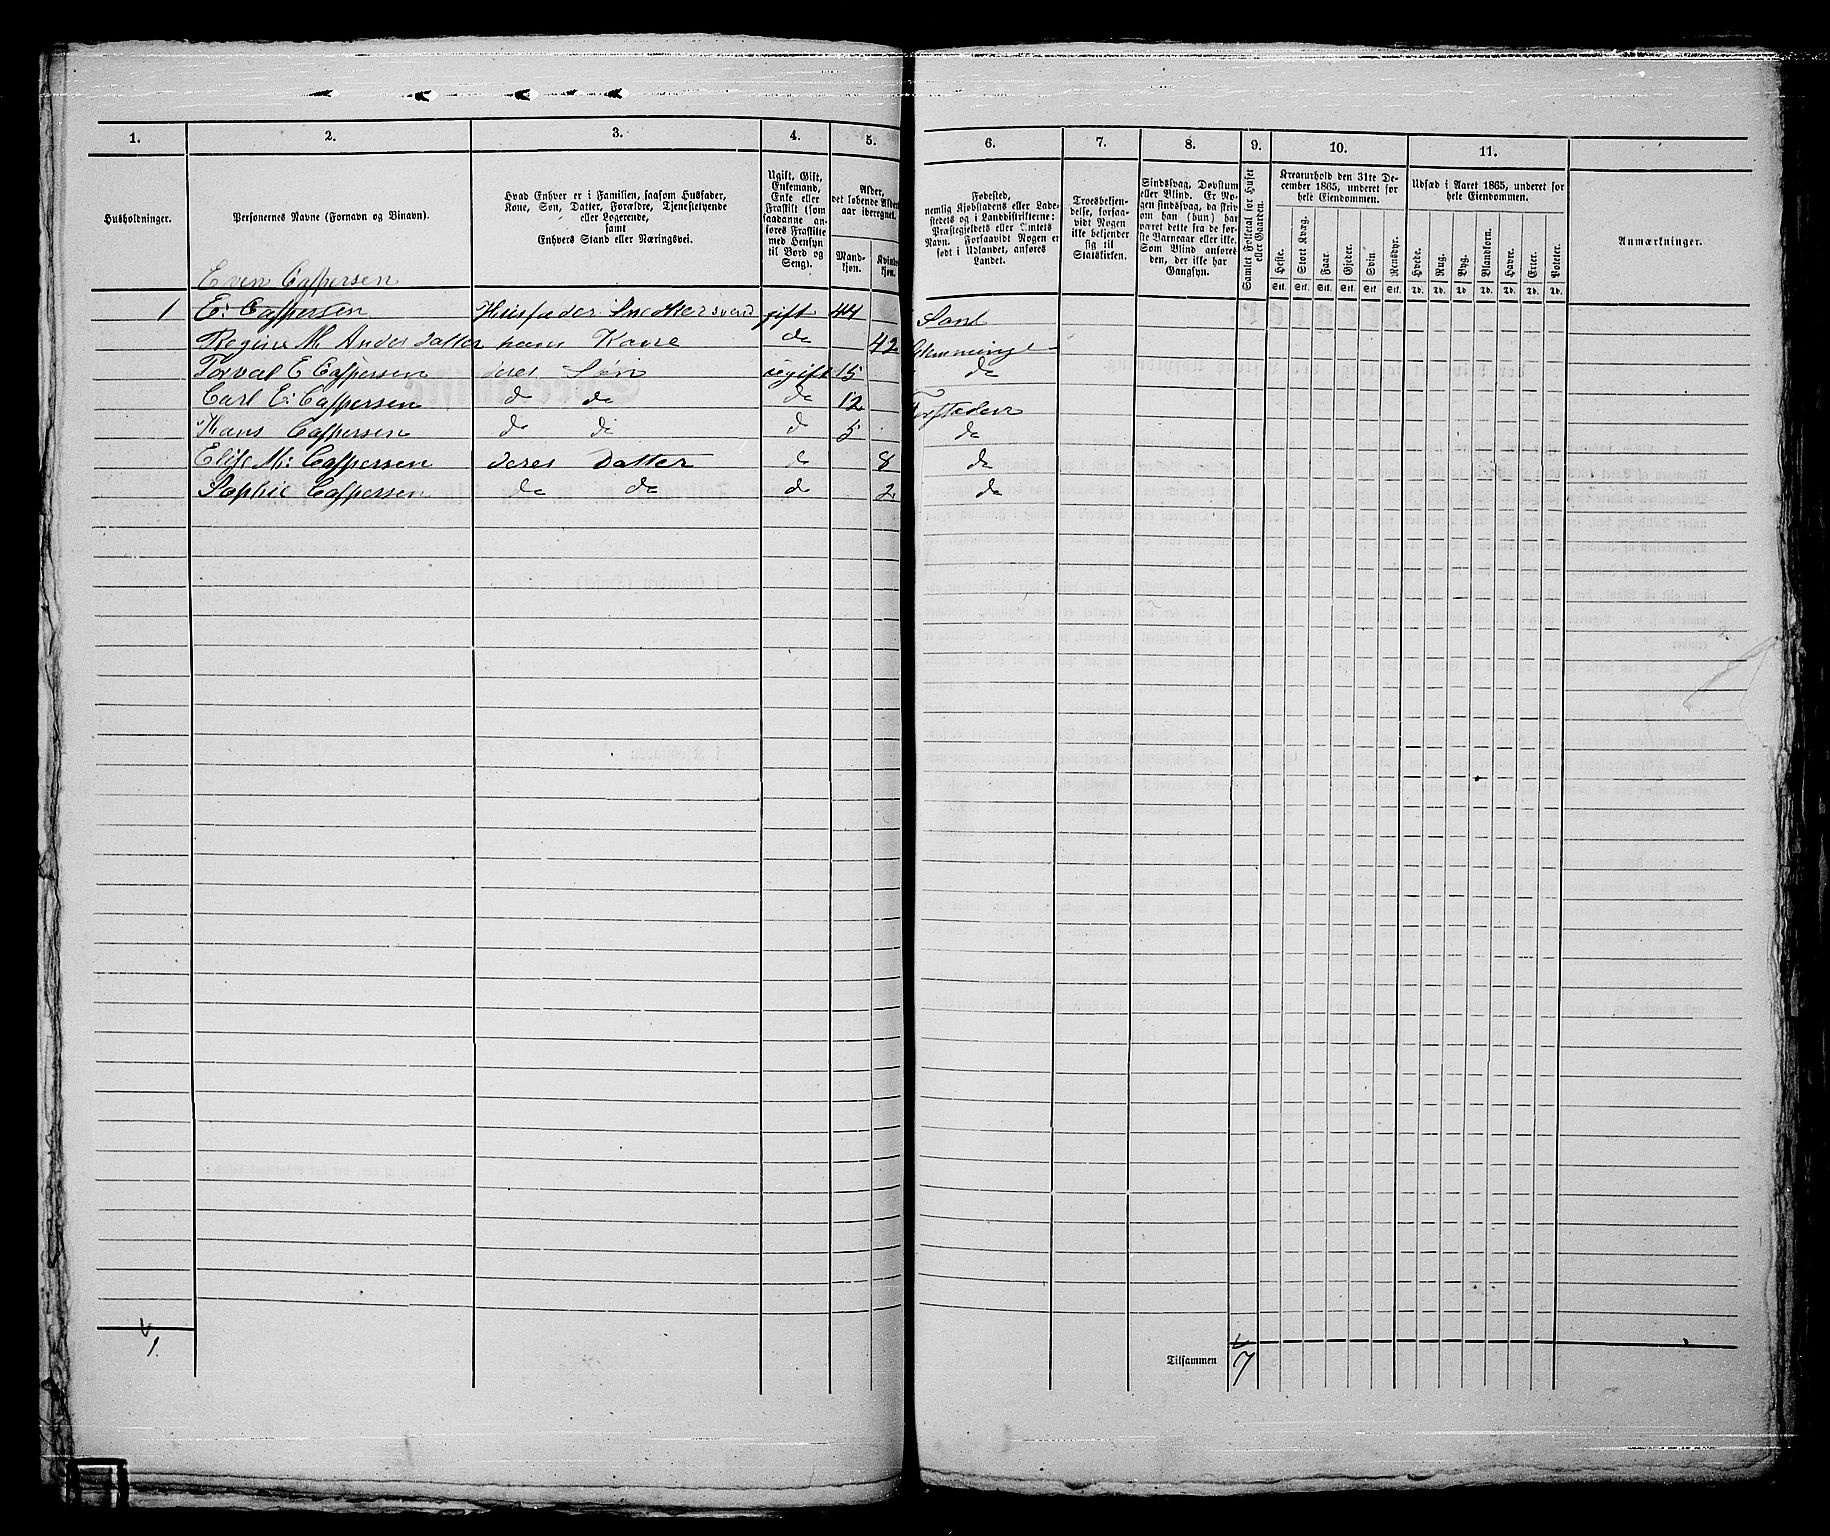 1. 2. 3. 4. 5. 6. 7. 8. 9. 10. 11.
Husholdninger.
Personernes Navne (Fornavn og Binavn).
Hvad Enhver er i Familien, saasom Husfader,
Kone, Søn, Datter, Forældre, Tjenestetyende
eller Logerende,
samt
Enhvers Stand eller Næringsvei.
Ugift, Gift,
Enkemand,
Enke eller
Fraskilt (som
saadanne an-
føres Fraskilte
med Hensyn
til Bord og
Seng).
Alder,
det løbende Alders-
aar iberegnet.
Mand-
kjøn.
Kvinde-
kjøn.
Fødested,
nemlig Kjøbstadens eller Lade-
stedets og i Landdistrikterne:
Præstegjeldets eller Amtets
Navn. Forsaavidt Nogen er
født i Udlandet, anføres
Landet.
Troesbekjen-
delse, forsaa-
vidt Nogen
ikke bekjender
sig til
Statskirken.
Sindssvag, Døvstum
eller Blind. Er No-
gen sindssvag, da skriv
om han (hun) har
været dette fra de før-
ste Barneaar eller ikke.
Som Blind anføres
den, der ikke har
Gangsyn.
Samlet Folketal for Huset
eller Gaarden.
Kreaturhold den 31te De-
cember 1865, underet for
hele Eiendommen.
Heste. Stort Kvæg. Faar. Gjeder. Svin. Rensdyr.
Stk. Stk. Stk. Stk. Stk. Stk.
Udsæd i Aaret 1865, underet for
hele Eiendommen.
Hvede. Rug. Byg. Blandkorn. Havre. Erter. Poteter.
Td. Td. Td. Td. Td. Td. Td.
Anmærkninger.
Even Caspersen
1 E: Caspersen Husfader Snedkersvend gift 44
Regine M Andersdatter hans Kone do 42 Glemminge
Torval E Caspersen deres Søn ugift 15 do
Carl E: Caspersen do do do 12
Hans Caspersen do do do 5 do
Elise M: Caspersen deres Datter do 8 do
Sophie Caspersen do do do 2 do
1.
Tilsammen 7